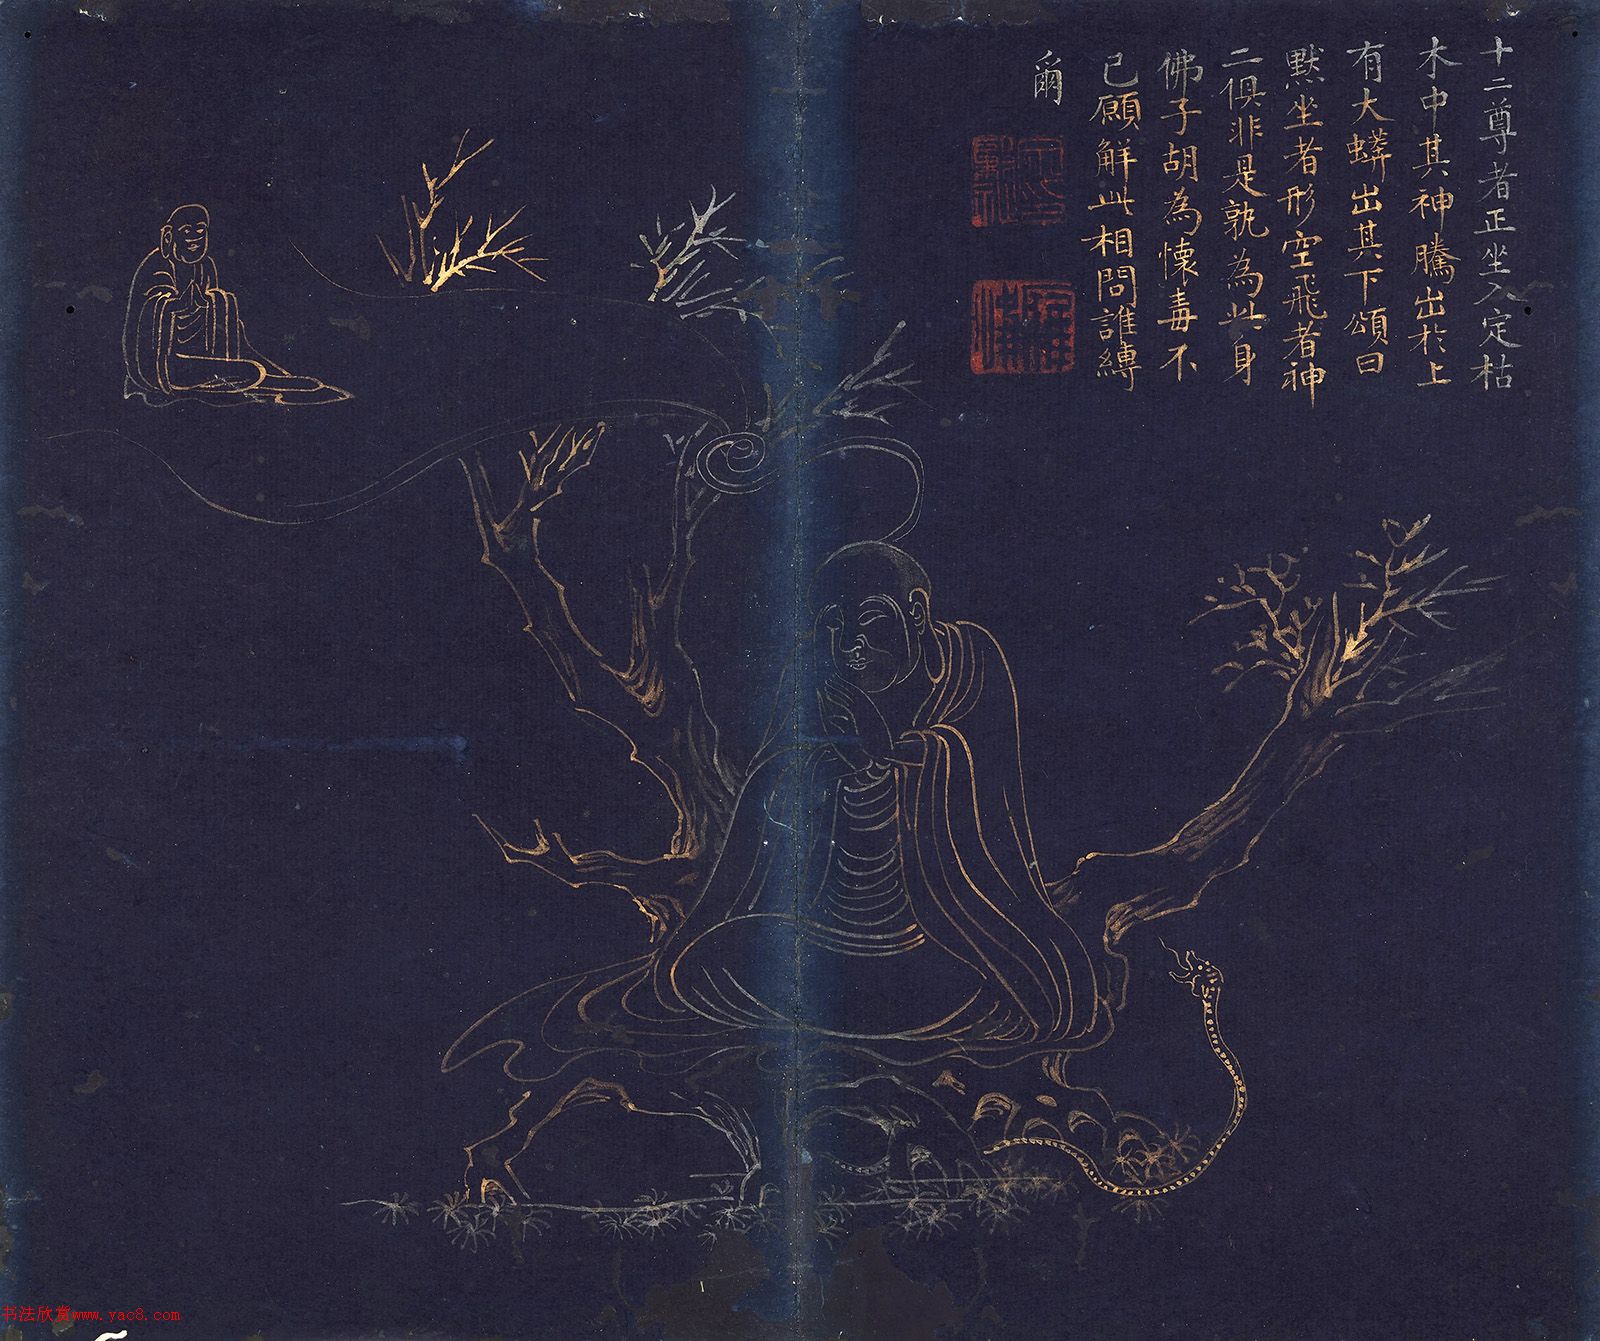 十二尊者正坐入定枯
木中其神騰出於上
有大蟒出其下頌曰
默坐者形空飛者神
二俱非是孰為此身
佛子胡為懷毒不
已願解此相問誰縛
爾
书法欣赏www.yac8.com